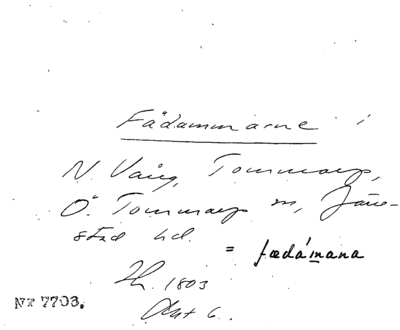 Fädammarne
N. Vång, Tommarp,
Ö. Tommarp sn, Järre-
stad hd.
= fædámana
Lh. 1803
Akt 6.
Nr 7703.